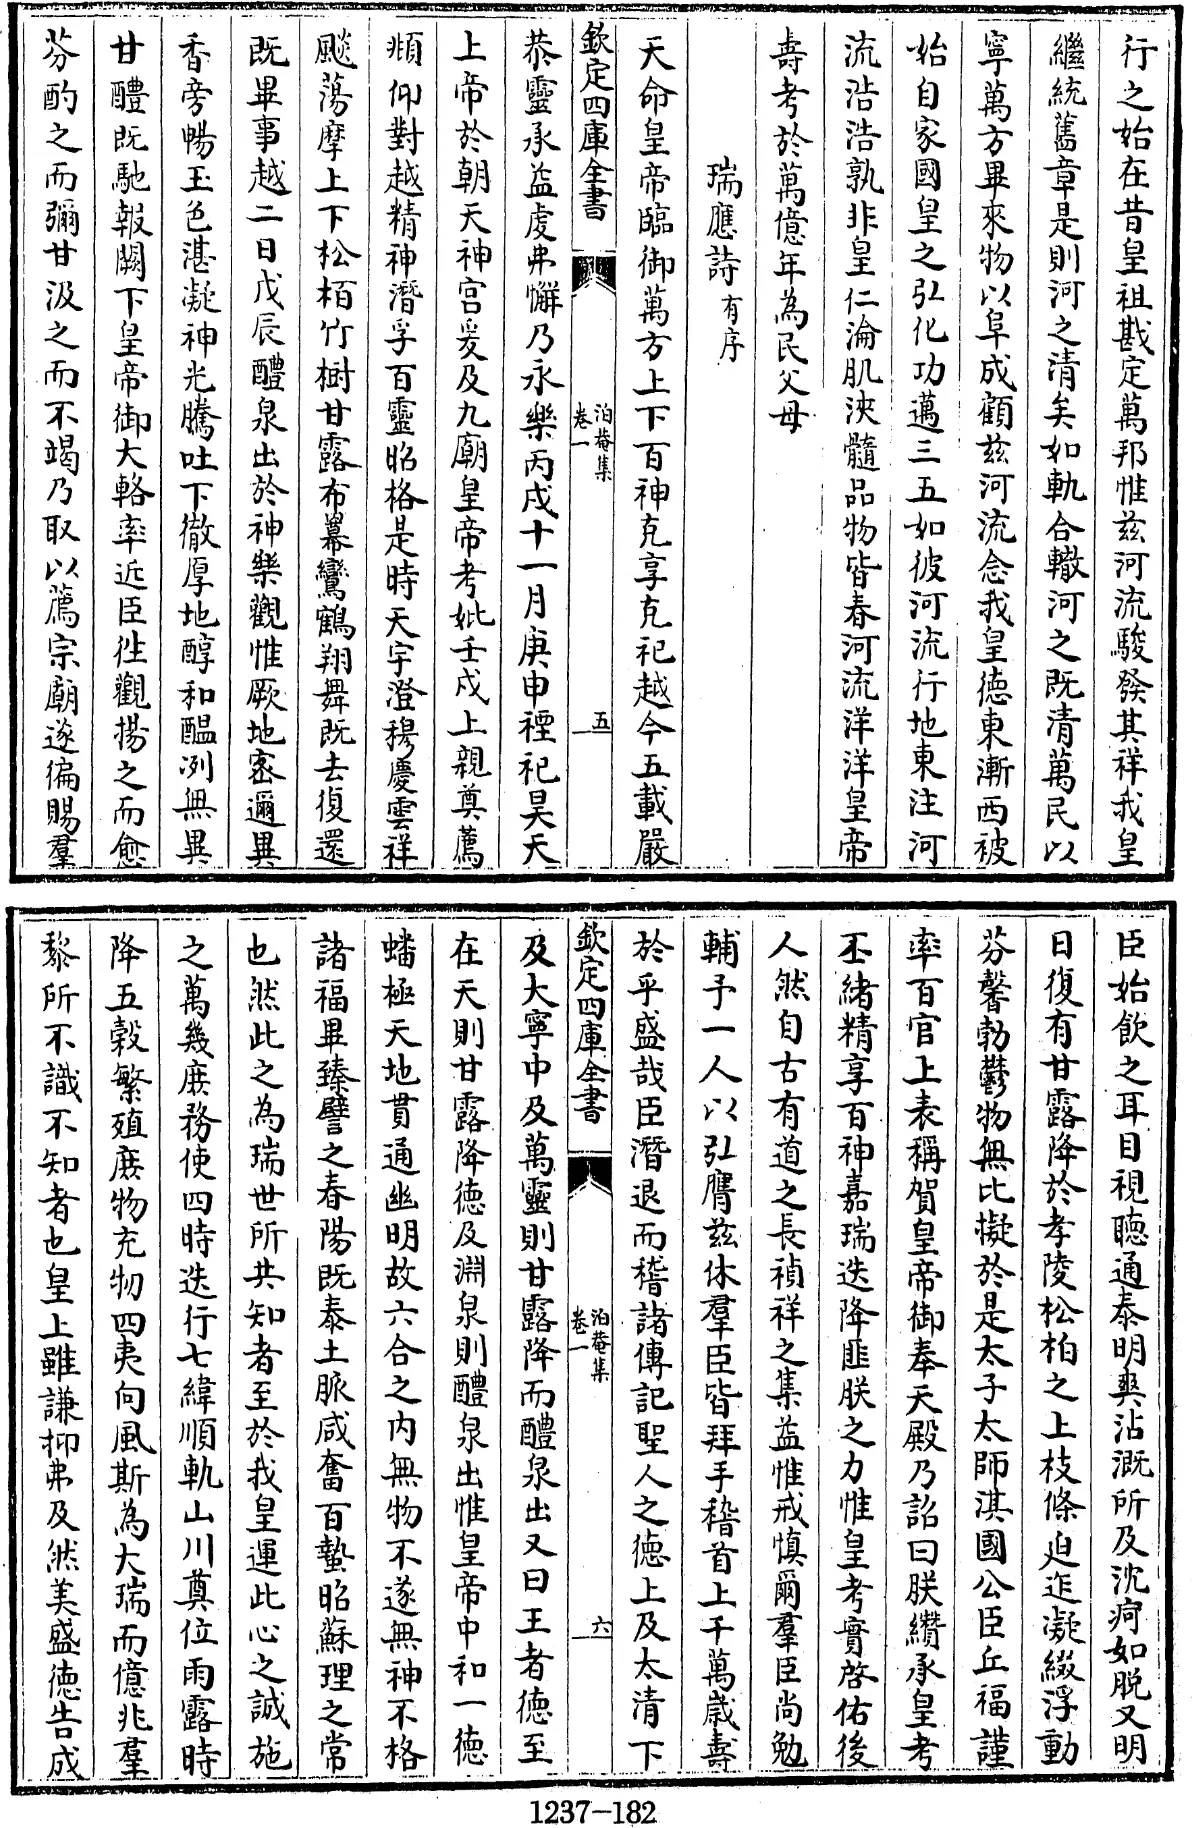 行之始在昔皇祖戡定萬邦惟兹河流駿發其祥我皇
繼統舊章是則河之清矣如軌合轍河之既清萬民以
寧萬方畢來物以阜成顧兹河流念我皇德東漸西被
始自家國皇之弘化功邁三五如彼河流行地東注河
流浩浩孰非皇仁淪肌浹髓品物皆春河流洋洋皇帝
壽考於萬億年為民父母
瑞應詩有序
天命皇帝臨御萬方上下百神克享克祀越今五載嚴
恭靈承益虔弗懈乃永樂丙戌十一月庚申禋祀昊天
欽定四庫全書
泊菴集
卷一
五
上帝於朝天神宫爰及九廟皇帝考妣壬戌上親奠薦
頫仰對越精神潛孚百靈昭格是時天宇澄穆慶雲祥
飈蕩摩上下松栢竹樹甘露布羃鸞鶴翔舞既去復還
既畢事越二日戊辰醴泉出於神樂觀惟厥地密邇異
香旁暢玉色湛凝神光騰吐下徹厚地醇和醖冽無異
甘醴既馳報闕下皇帝御大輅率近臣徃觀揚之而愈
芬酌之而彌甘汲之而不竭乃取以薦宗廟遂徧賜羣
臣始飲之耳目視聽通泰明爽沾溉所及沈疴如脱又明
日復有甘露降於孝陵松柏之上枝條迫迮凝綴浮動
芬馨勃鬱物無比擬於是太子太師淇國公臣丘福謹
率百官上表稱賀皇帝御奉天殿乃詔曰朕纘承皇考
丕緒精享百神嘉瑞迭降匪朕之力惟皇考實啓佑後
人然自古有道之長禎祥之集益惟戒慎爾羣臣尚勉
輔予一人以弘膺兹休羣臣皆拜手稽首上千萬歲壽
於乎盛哉臣潛退而稽諸傳記聖人之德上及太清下
欽定四庫全書
泊菴集
卷一
六
及大寧中及萬靈則甘露降而醴泉出又曰王者德至
在天則甘露降德及淵泉則醴泉出惟皇帝中和一德
蟠極天地貫通幽明故六合之内無物不遂無神不格
諸福畢臻譬之春陽既泰土脈咸奮百蟄昭蘇理之常
也然此之為瑞世所共知者至於我皇運此心之誠施
之萬幾庶務使四時迭行七緯順軌山川奠位雨露時
降五穀繁殖庶物充牣四夷向風斯為大瑞而億兆羣
黎所不識不知者也皇上雖謙抑弗及然美盛德告成
1237-182